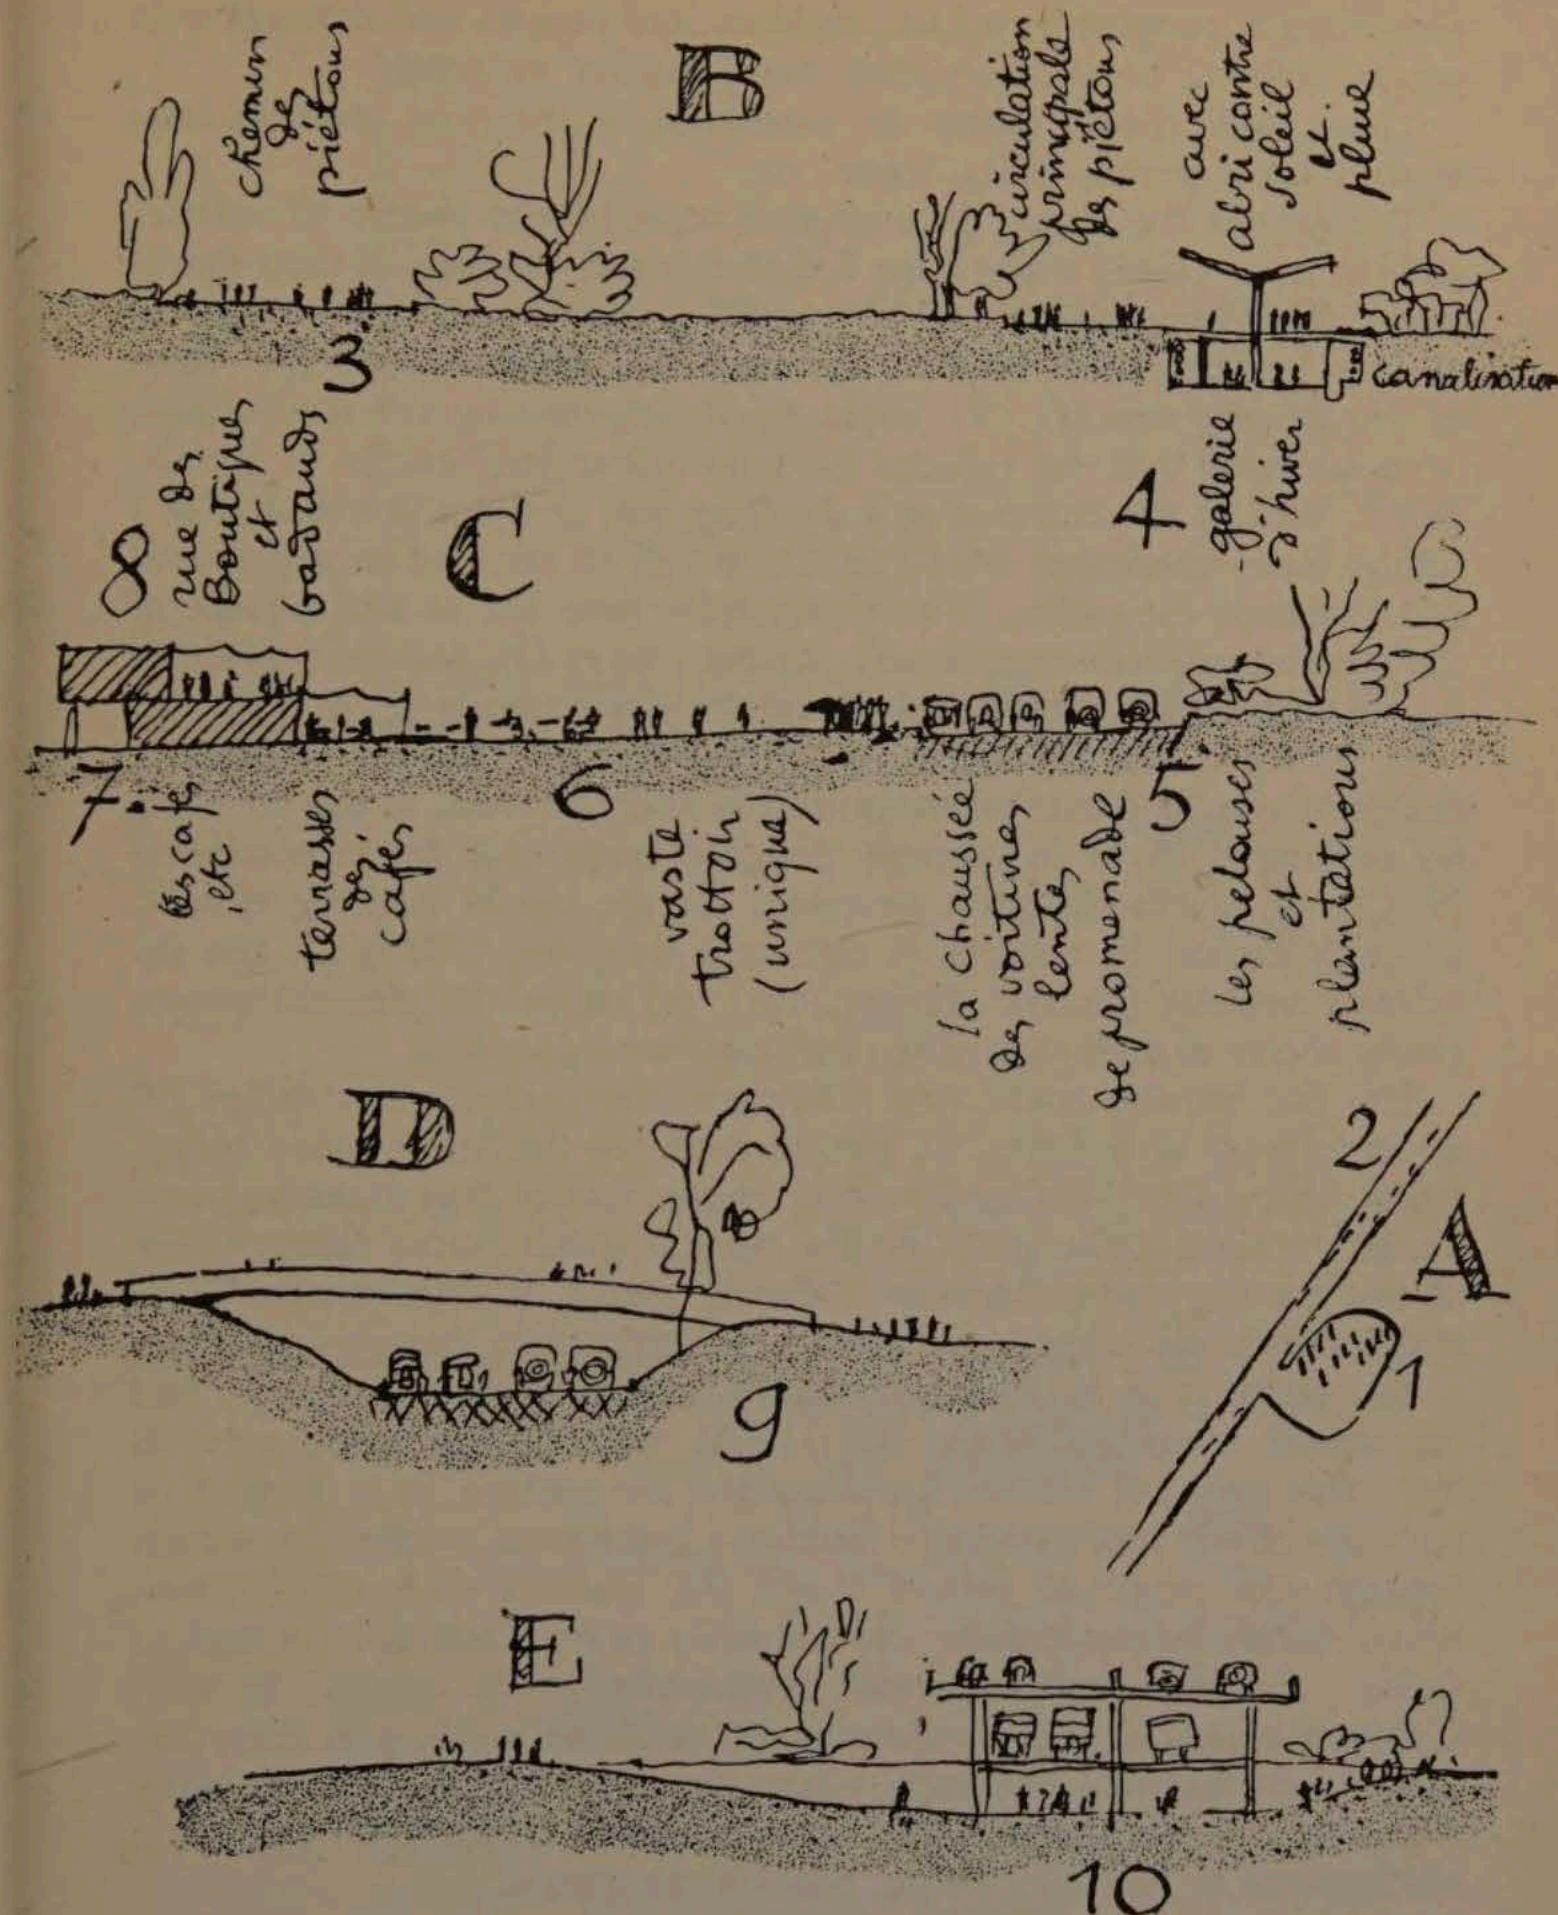 B
chemin
de
piétons
circulation
principale
des piétons
avec
abri contre
soleil
et
pluie
3
canalisation
4
galerie
d'hiver
8
rue des
Boutiques
et
badauds
C
7
les cafés
etc
terrasses
des
cafés
6
vaste
trottoir
(unique)
la chaussée
des voitures
lentes
de promenade
5
les pelouses
et
plantations
D
9
2
A
1
E
10